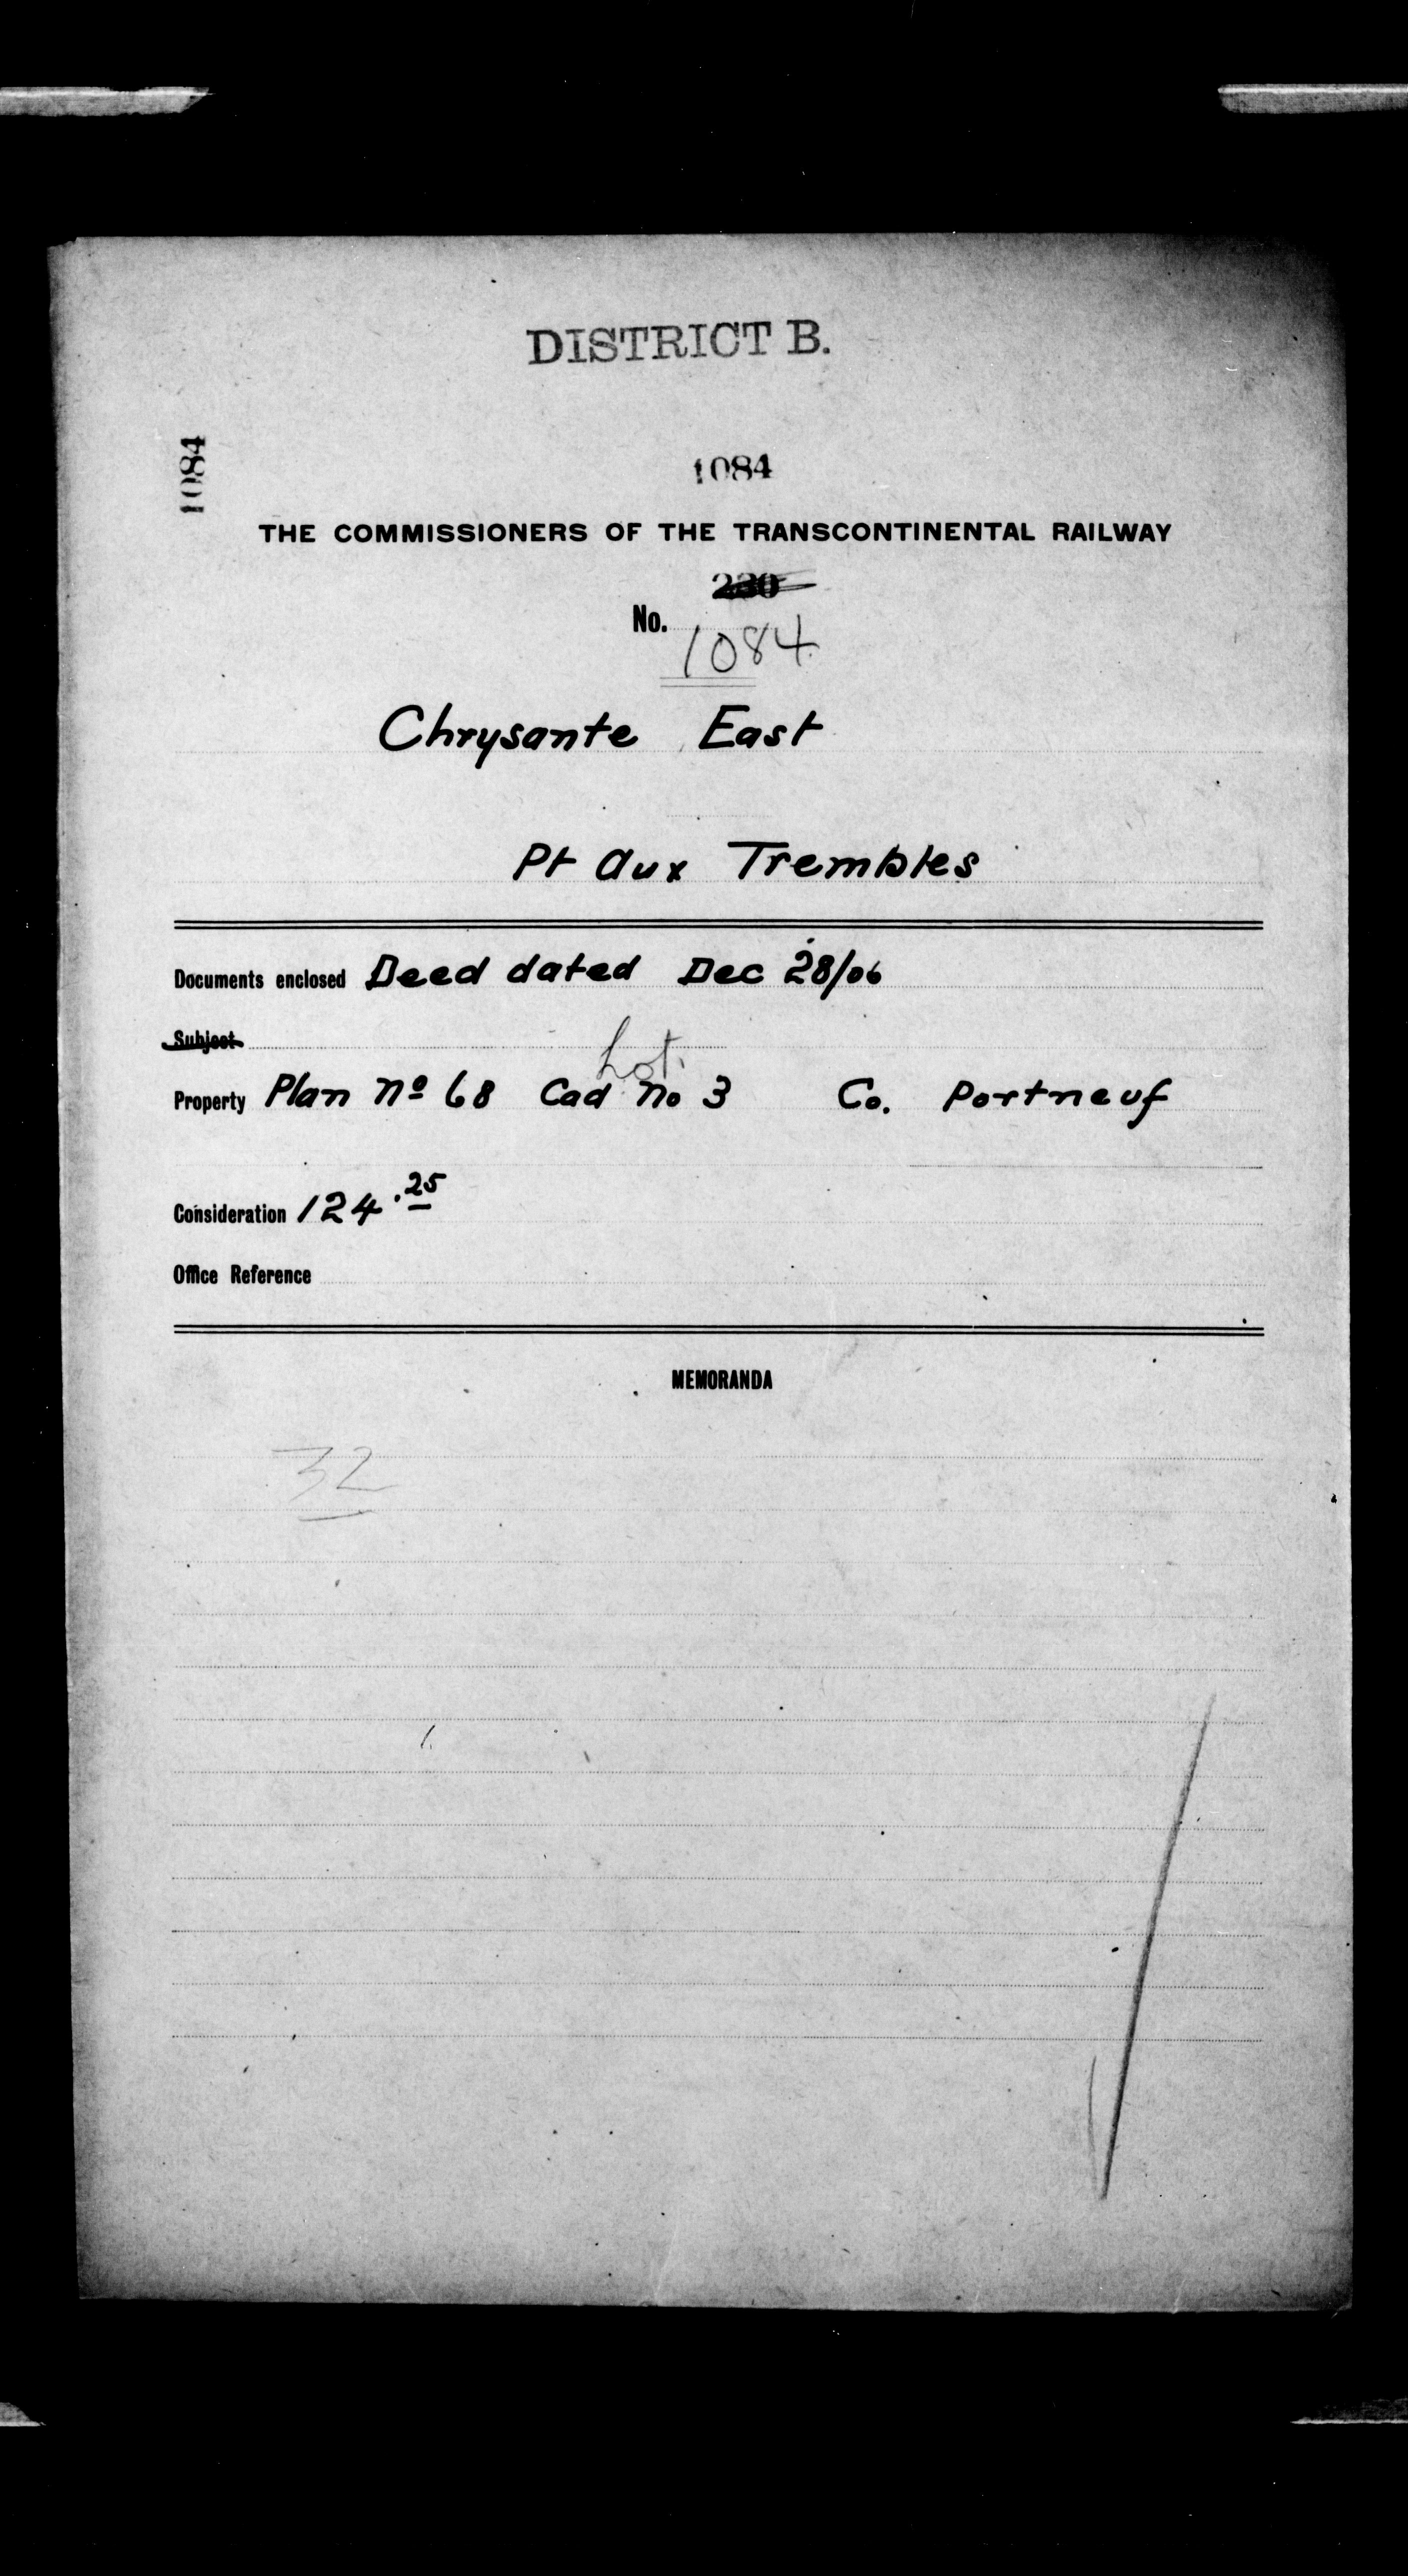 DISTRICT B.
1084
1084
THE COMMISSIONERS OF THE TRANSCONTINENTAL RAILWAY
230
No. 1084
Chrysante East
Pt aux Trembles
Documents enclosed Deed dated Dec 28/06
Subject
Lot
Property Plan No 68 Cad no 3 Co. Portneuf
Consideration 124.25
Office Reference
MEMORANDA
32